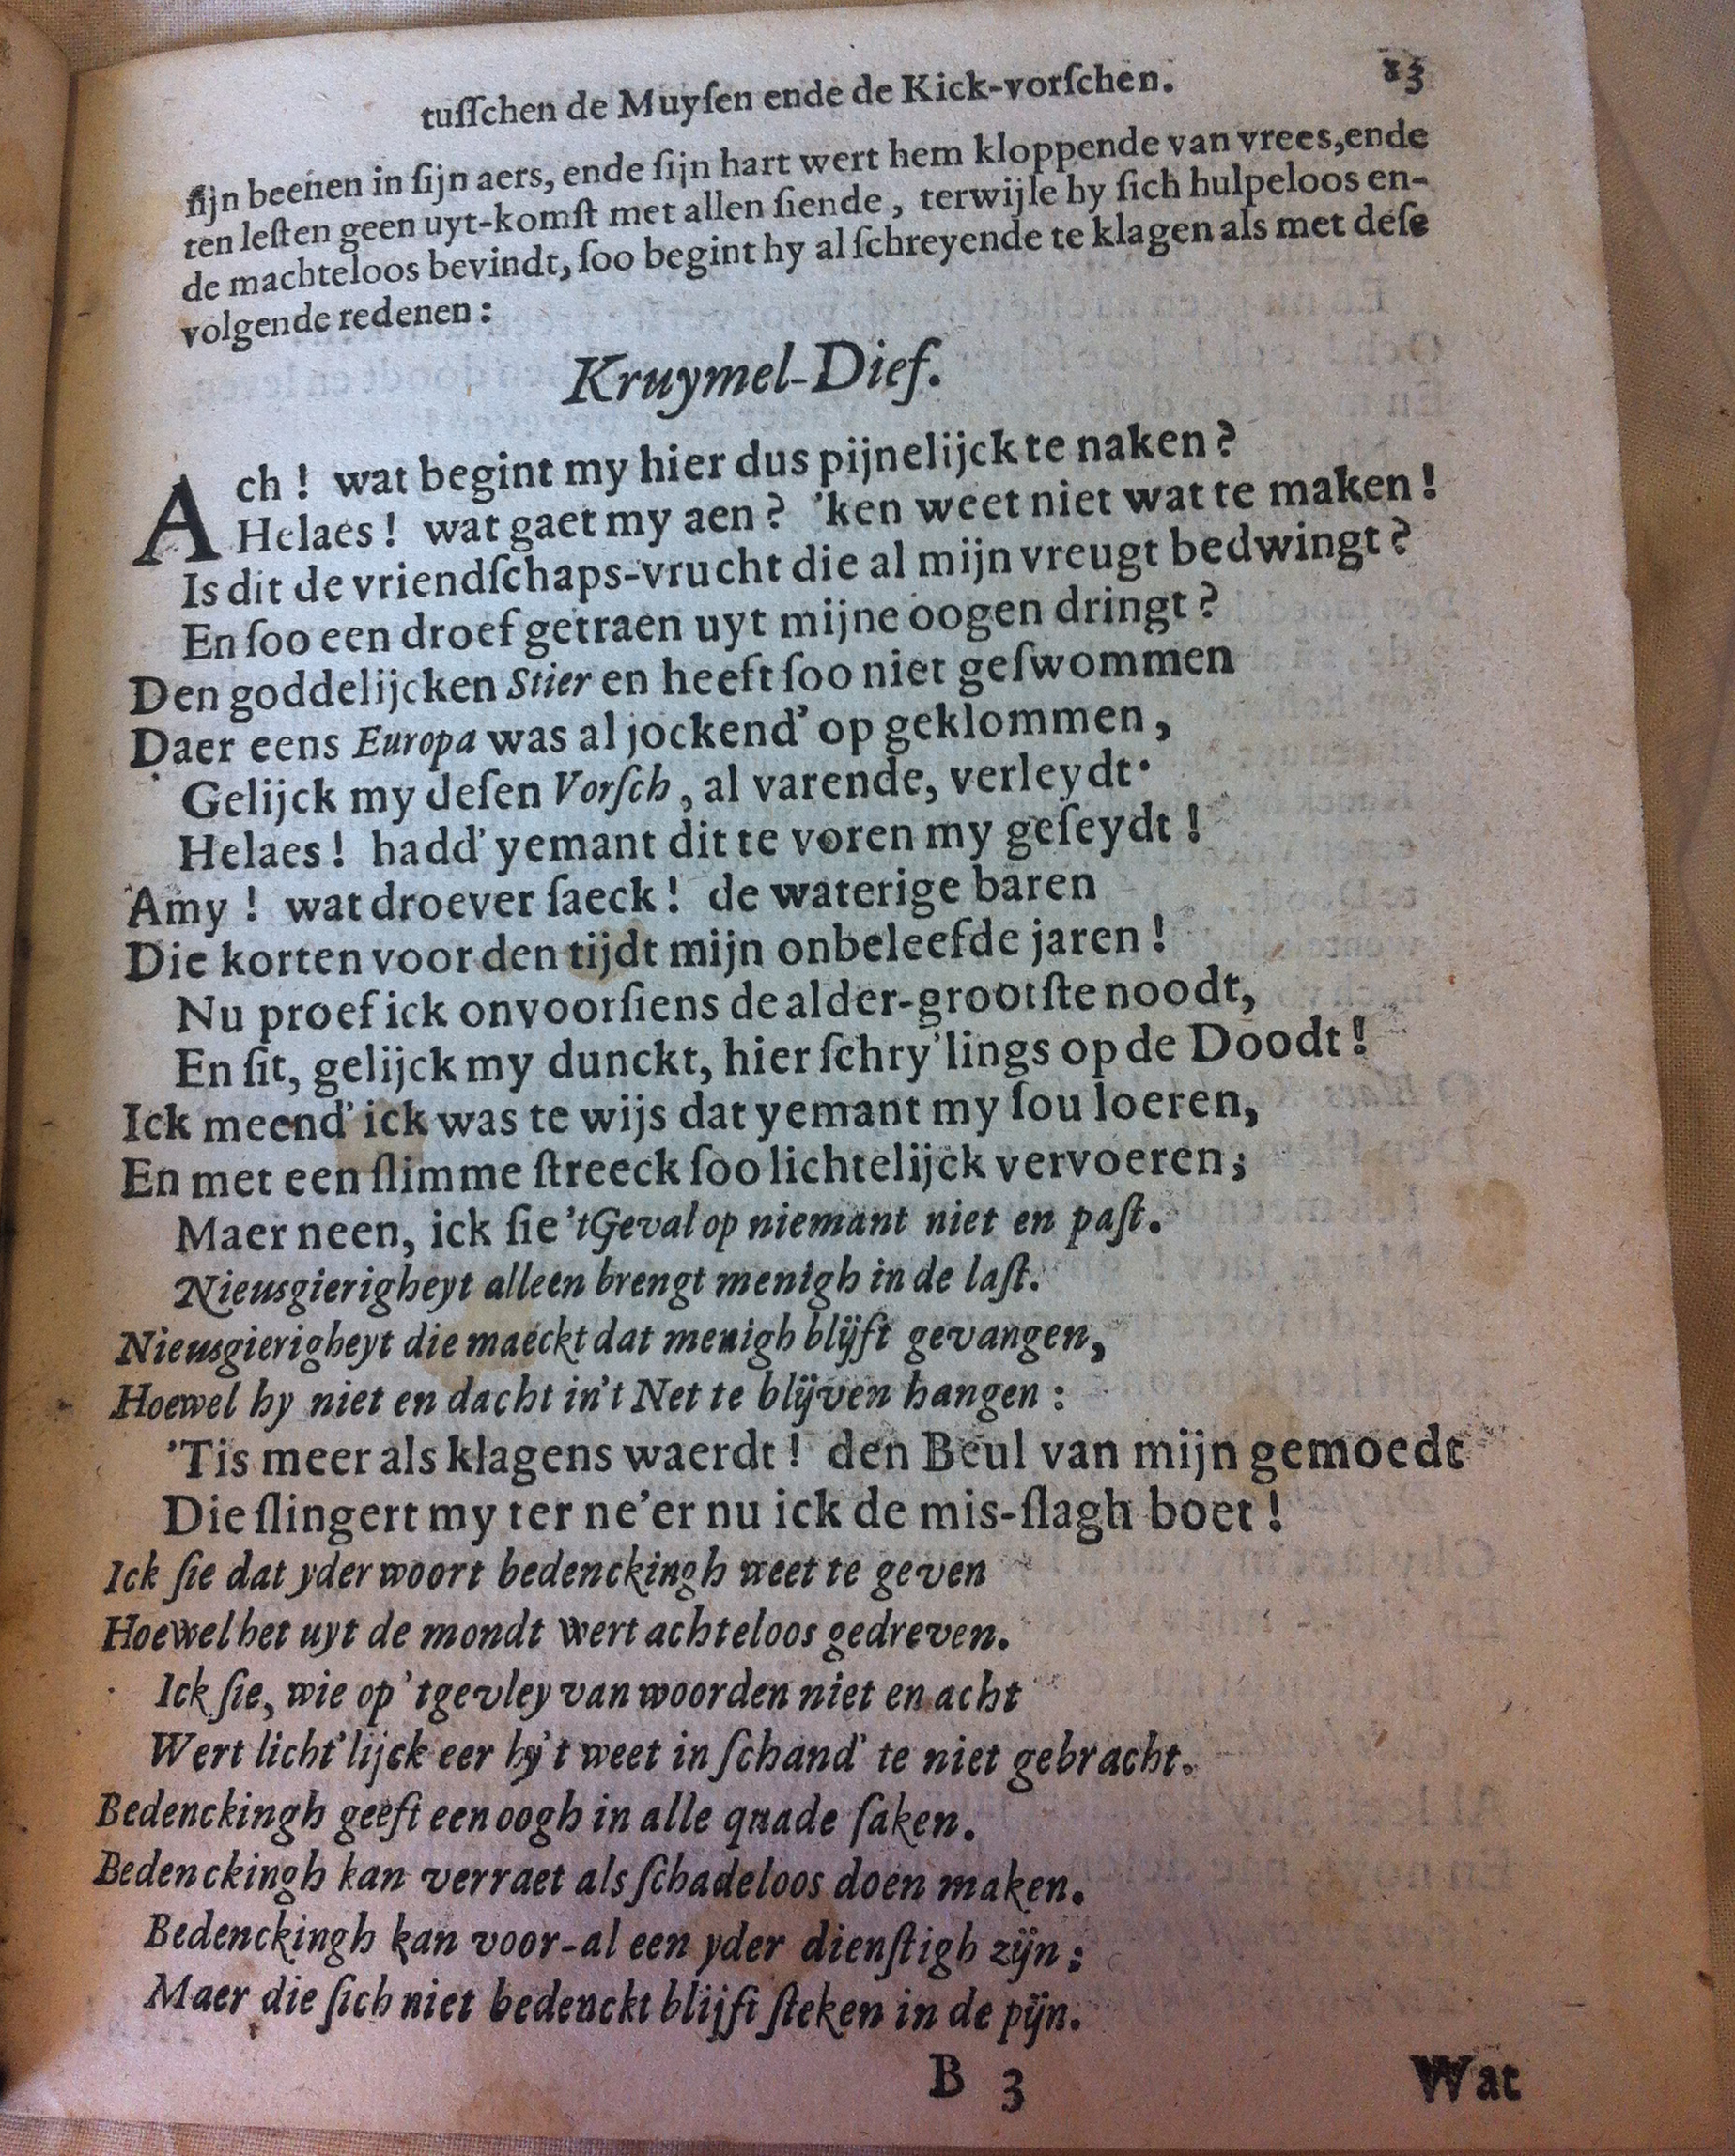 tuſſchen de Muyſen ende de Kick-vorſchen. 23
ſijn beenen in ſijn aers, ende ſijn hart wert hem kloppende van vrees, ende
ten leſten geen uyt-komſt met allen ſiende, terwijle hy ſich hulpeloos en-
de machteloos bevindt, ſoo begint hy al ſchreyende te klagen als met deſe
volgende redenen:
Kruymel-Dief.
Ach! wat begint my hier dus pijnelijck te naken?
Helaes! wat gaet my aen? 'ken weet niet wat te maken!
Is dit de vriendſchaps-vrucht die al mijn vreugt bedwingt?
En ſoo een droef getraen uyt mijne oogen dringt?
Den goddelijcken Stier en heeft ſoo niet geſwommen
Daer eens Europa was al jockend' op geklommen,
Gelijck my deſen Vorſch, al varende, verleydt.
Helaes! hadd' yemant dit te voren my geſeydt!
Amy! wat droever ſaeck! de waterige baren
Die korten voor den tijdt mijn onbeleefde jaren!
Nu proef ick onvoorſiens de alder-grootſte noodt,
En ſit, gelijck my dunckt, hier ſchry'lings op de Doodt!
Ick meend' ick was te wijs dat yemant my ſou loeren,
En met een ſlimme ſtreeck ſoo lichtelijck vervoeren;
Maer neen, ick ſie 't Geval op niemant niet en paſt.
Nieusgierigheyt alleen brengt menigh in de laſt.
Nieusgierigheyt die maeckt dat menigh blijft gevangen,
Hoewel hy niet en dacht in't Net te blijven hangen:
'Tis meer als klagens waerdt! den Beul van mijn gemoedt
Die ſlingert my ter ne'er nu ick de mis-ſlagh boet!
Ick ſie dat yder woort bedenckingh weet te geven
Hoewel het uyt de mondt wert achteloos gedreven.
Ick ſie, wie op 'tgevley van woorden niet en acht
Wert licht'lijck eer hy't weet in ſchand' te niet gebracht.
Bedenckingh geeft een oogh in alle quade ſaken.
Bedenckingh kan verraet als ſchadeloos doen maken.
Bedenckingh kan voor-al een yder dienſtigh zijn;
Maer die ſich niet bedenckt blijft ſteken in de pijn.
B 3 Wat